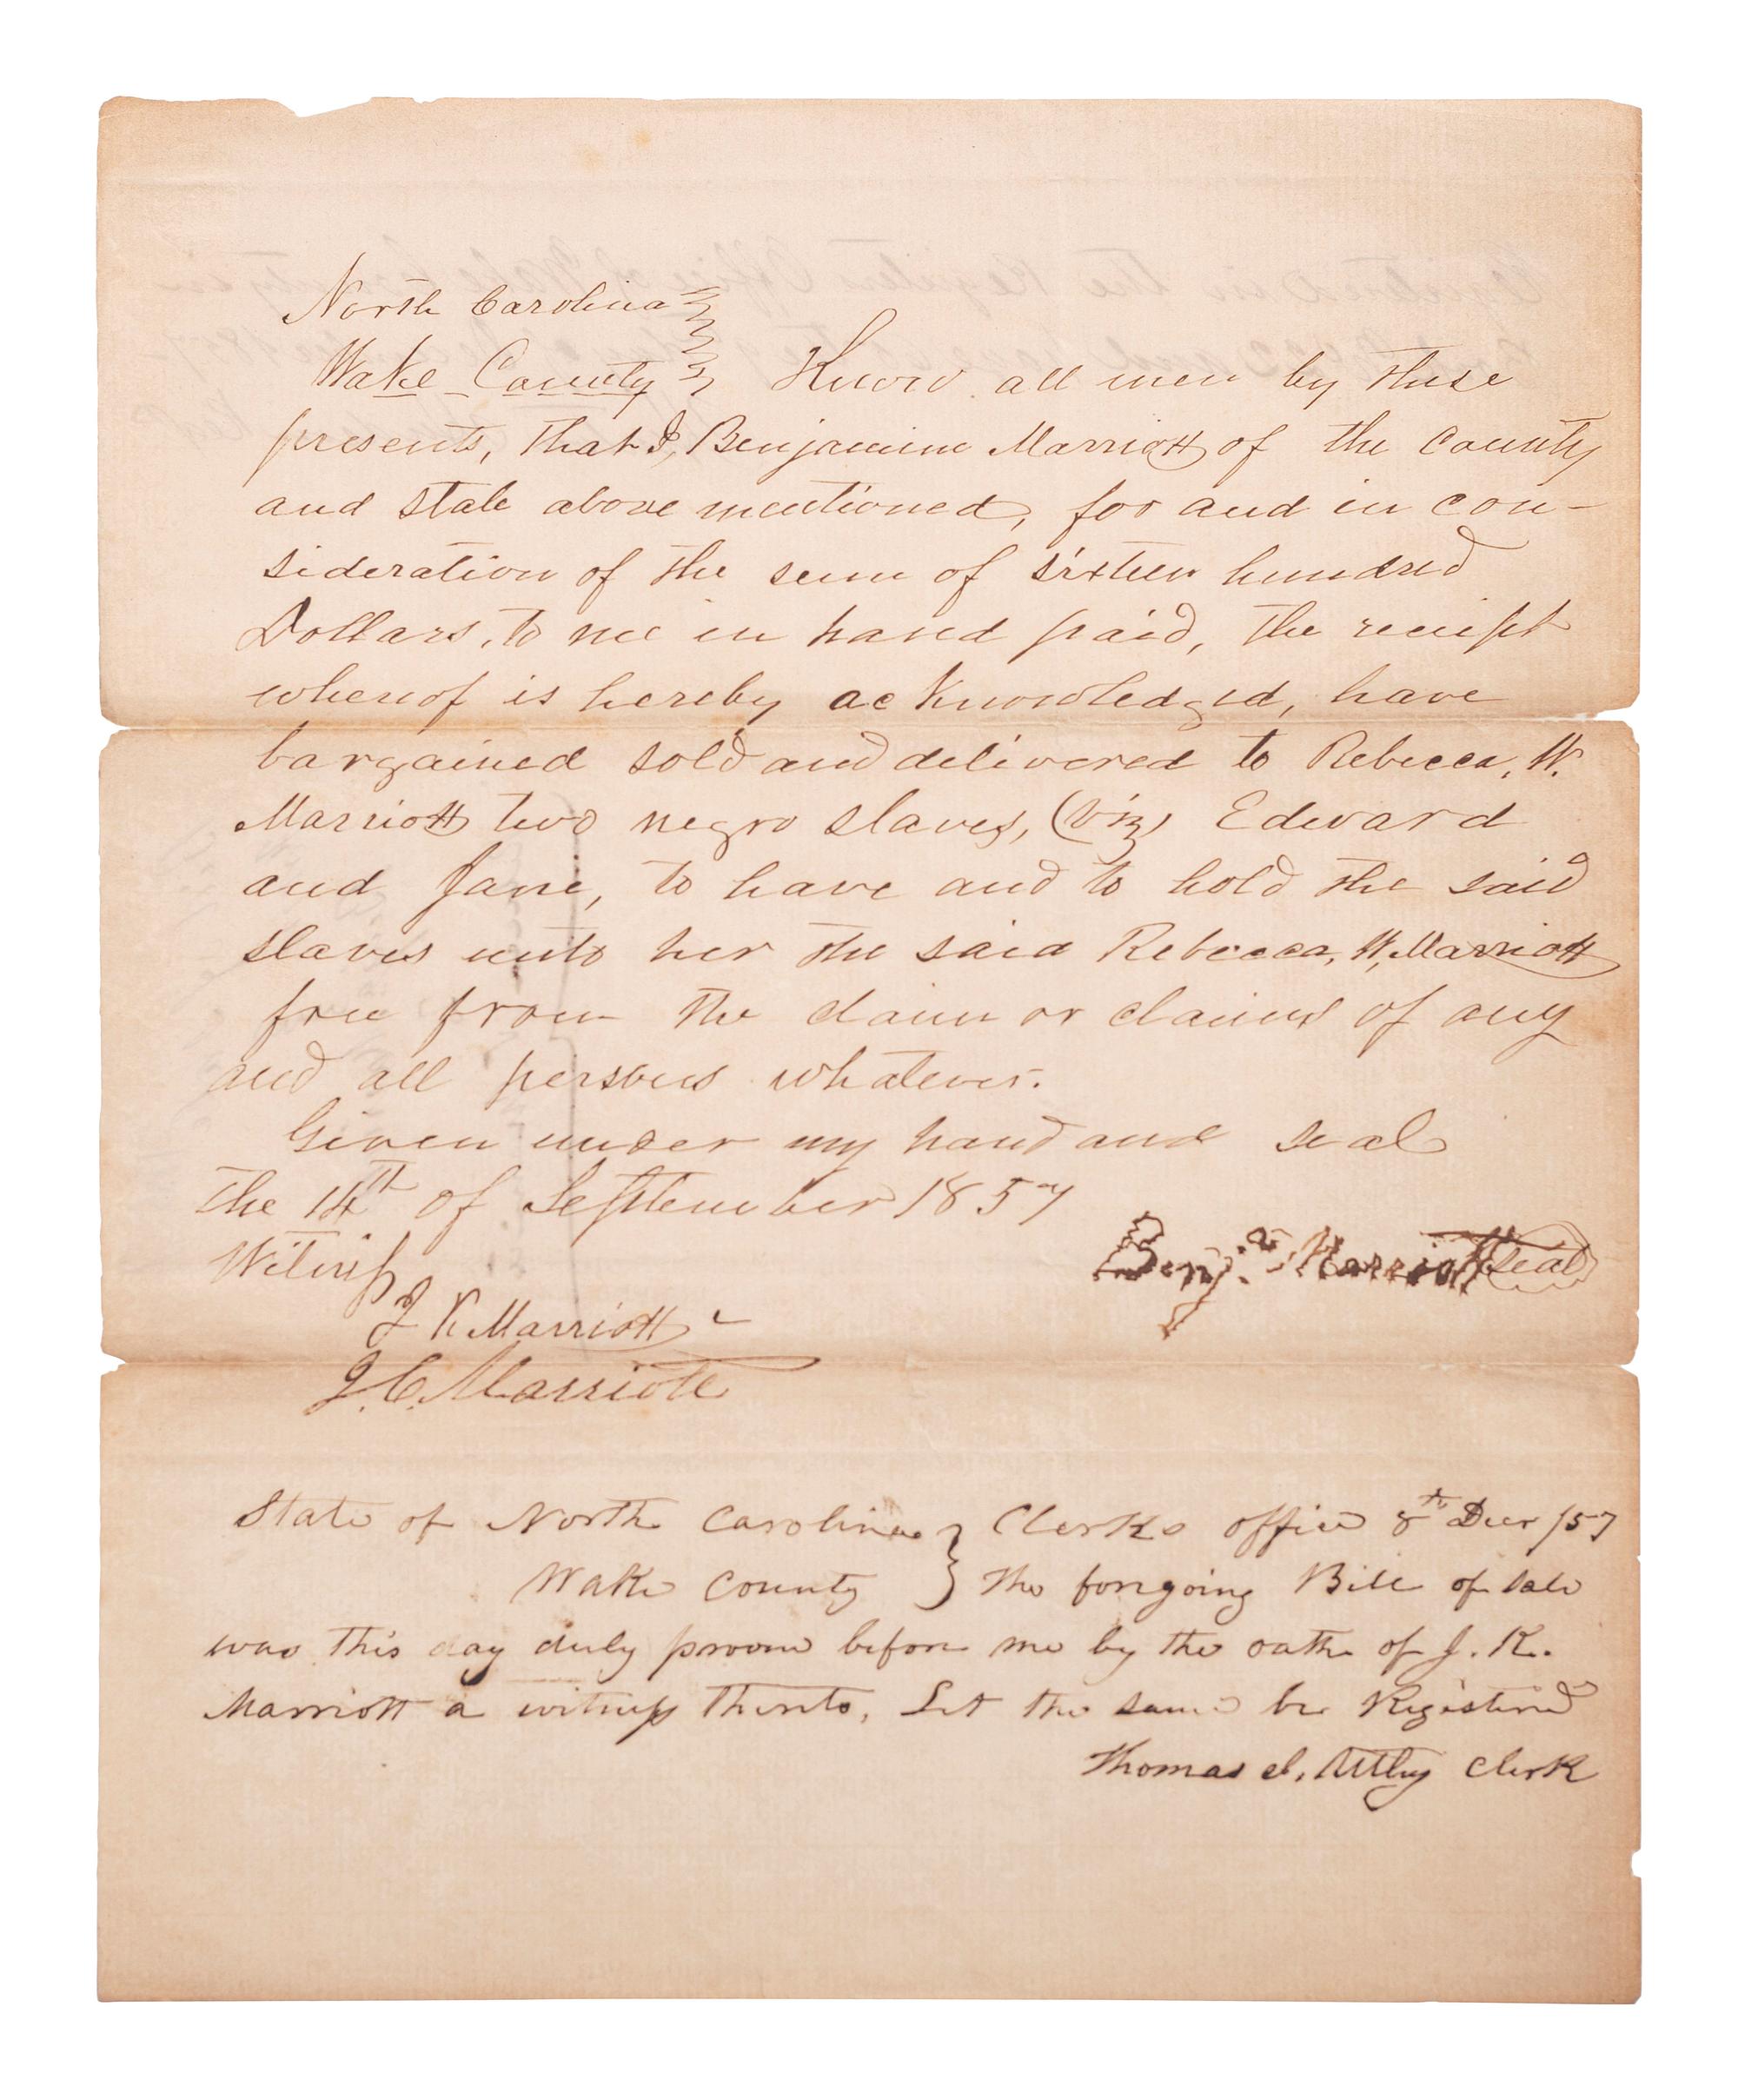 North Carolina
Wake County Know all men by these
presents, that I, Benjamine Marriott of the County
and state above mentioned, for and in con-
sideration of the sum of sixteen hundred
Dollars, to me in hand paid, the receipt
whereof is hereby acknowledged, have
bargained sold and delivered to Rebecca, W.
Marriott two negro slaves, (viz) Edward
and Jane, to have and to hold the said
slaves unto her the said Rebecca, W, Marriott
free from the claim or claims of any
and all persons whatever.
Given under my hand and seal
the 14th of September 1857
Witness
Benj.n Marriott seal
J K Marriott
J. C. Marriott
State of North Carolina } Clerks office 8th Decr /57
Wake County } The foregoing Bill of sale
was this day duly proven before me by the oath of J. K.
Marriott a witness thereto, Let the same be Registered
Thomas J. Utley Clerk